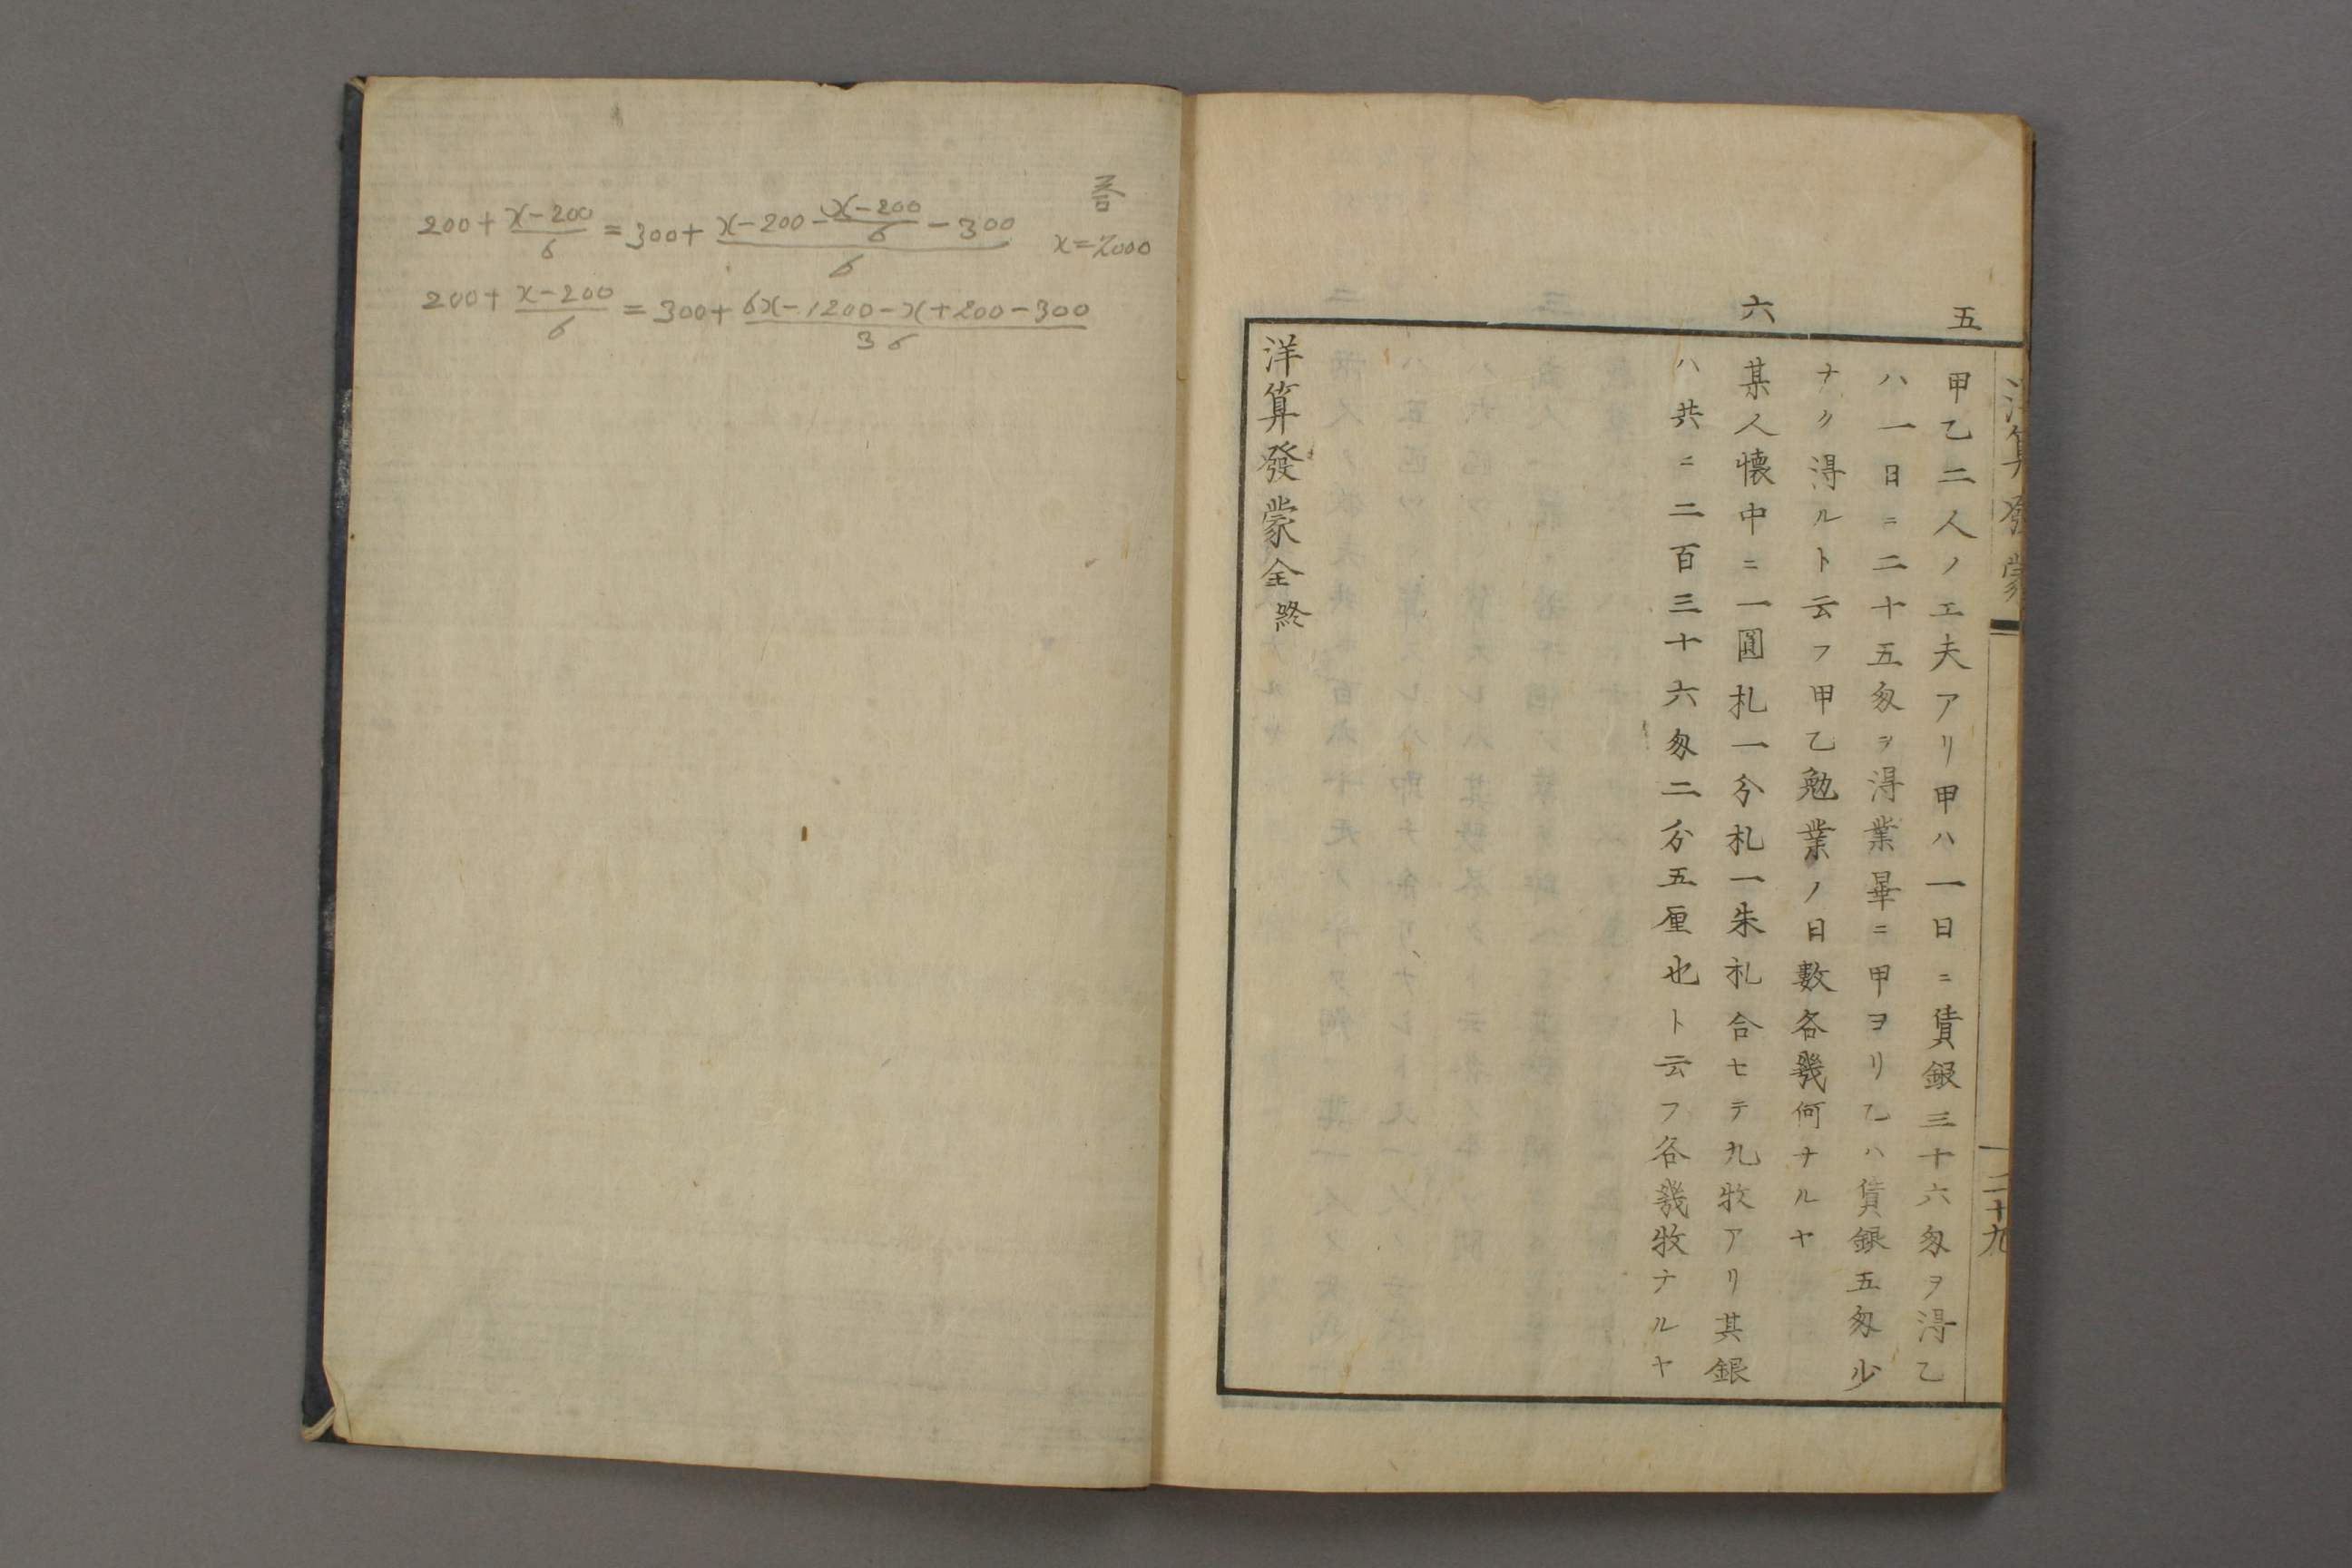 五
甲乙二人ノ工夫アリ甲ハ一日ニ賃銀三十六匁ヲ得乙
ハ一日ニ二十五匁ヲ得業畢ニ甲ヨリ乙ハ賃銀五匁少
ナク得ルト云フ甲乙勉業ノ日數各幾何ナルヤ
六
某人懐中ニ一圓札一分札一朱札合セテ九枚アリ其銀
ハ共ニ二百三十六匁二分五厘也ト云フ各幾枚ナルヤ
洋算發蒙全終
洋算發蒙
二十九
200+(x-200)/6=300+(x-200-(x-200)/6-300)/6
答
x=2000
200+(x-200)/6=300+(6x-1200-x+200-300)/36